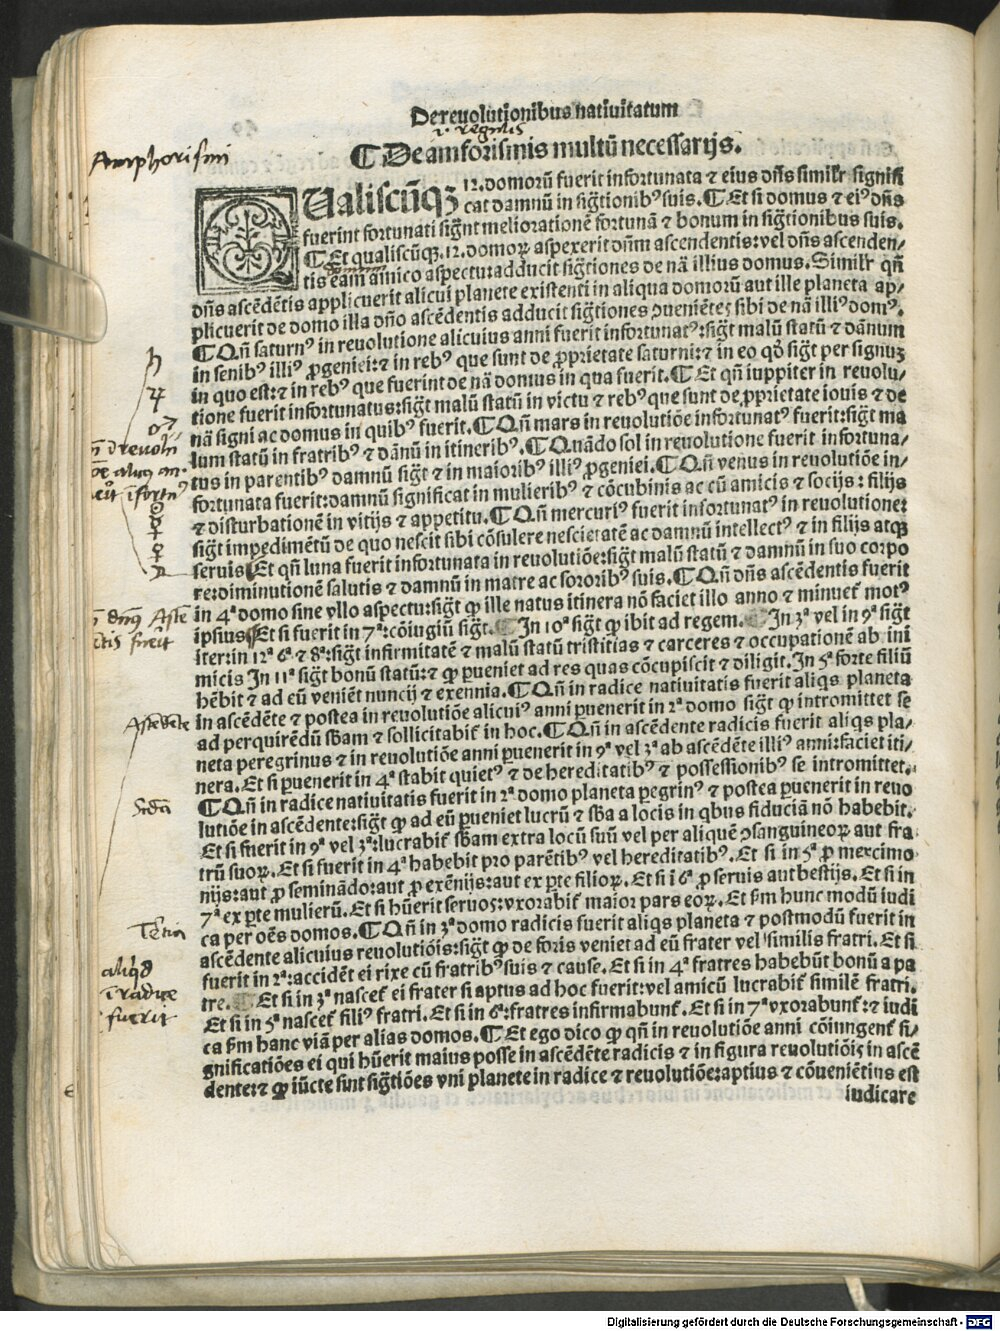 De reuolutionibus natiuitatum
.i. regulis
Amphorismi
⁋ De amforismis multũ necessarijs.
QUaliscũqȝ 12. domorũ fuerit infortunata ⁊ eius dñs similr̃ signifi
cat damnũ in sigt̃ionibꝰ suis. ⁋ Et si domus ⁊ eiꝰ dñs
fuerint fortunati sigñt meliorationẽ fortunã ⁊ bonum in sigt̃ionibus suis.
⁋ Et qualiscũqꝫ .12. domoꝝ aspexerit dñm ascendentis: vel dñs ascenden/
tis eam amico aspectu: adducit sigt̃iones de nã illius domus. Similr̃ qñ
dñs ascẽdẽtis applicuerit alicui planete existenti in aliqua domorũ aut ille planeta ap/
plicuerit de domo illa dño ascẽdentis adducit sigt̃iones ꝓueniẽtes sibi de nã illiꝰ domꝰ.
⁋ Qñ saturnꝰ in reuolutione alicuius anni fuerit infortunatꝰ: sigt̃ malũ statũ ⁊ dãnum
in senibꝰ illiꝰ ꝓgeniei: ⁊ in rebꝰ que sunt de ꝓprietate saturni: ⁊ in eo qđ sigt̃ per signuȝ
in quo est: ⁊ in rebꝰ que fuerint de nã domus in qua fuerit. ⁋ Et qñ iuppiter in reuolu/
tione fuerit infortunatus: sigt̃ malũ statũ in victu ⁊ rebꝰ que sunt de ꝓprietate iouis ⁊ de
nã signi ac domus in quibꝰ fuerit. ⁋ Qñ mars in reuolutiõe infortunatꝰ fuerit: sigt̃ ma
lum statũ in fratribꝰ ⁊ dãnũ in itineribꝰ. ⁋ Qñãdo sol in reuolutione fuerit infortuna/
tus in parentibꝰ damnũ sigt̃ ⁊ in maioribꝰ illiꝰ ꝓgeniei. ⁋ Qñ venus in reuolutiõe in/
fortunata fuerit: damnũ significat in mulieribꝰ ⁊ cõcubinis ac cũ amicis ⁊ socijs: filijs
⁊ disturbationẽ in vitijs ⁊ appetitu. ⁋ Qñ mercuriꝰ fuerit infortunatꝰ in reuolutione:
sigt̃ impedimẽtũ de quo nescit sibi cõsulere nescietatẽ ac damnũ intellectꝰ ⁊ in filijs atqꝫ
seruis Et qñ luna fuerit infortunata in reuolutiõe: sigt̃ malũ statũ ⁊ damnũ in suo corpo
re: diminutionẽ salutis ⁊ damnũ in matre ac sororibꝰ suis. ⁋ Qñ dñs ascẽdentis fuerit
in 4ª domo sine vllo aspectu: sigt̃ ꝙ ille natus itinera nõ faciet illo anno ⁊ minuet̃ motꝰ
ipsius Et si fuerit in 7ª: cõiugiũ sigt̃. ⁋ In 10ª sigt̃ ꝙ ibit ad regem. ⁋ In 3ª vel in 9ª sigt̃
iter: in 12ª 6ª ⁊ 8ª: sigt̃ infirmitatẽ ⁊ malũ statũ tristitias ⁊ carceres ⁊ occupationẽ ab ini
micis In 11ª sigt̃ bonũ statũ: ⁊ ꝙ ꝑueniet ad res quas cõcupiscit ⁊ diligit. In 5ª forte filiũ
hẽbit ⁊ ad eũ veniẽt nuncij ⁊ exennia. ⁋ Qñ in radice natiuitatis fuerit aliqs planeta
in ascẽdẽte ⁊ postea in reuolutiõe alicuiꝰ anni ꝑuenerit in 2ª domo sigt̃ ꝙ intromittet se
ad perquirẽdũ sb̃am ⁊ sollicitabit̃ in hoc. ⁋ Qñ in ascẽdente radicis fuerit aliqs pla/
neta peregrinus ⁊ in reuolutiõe anni ꝑuenerit in 9ª vel 3ª ab ascẽdẽte illiꝰ anni: faciet iti/
nera. Et si ꝑuenerit in 4ª stabit quietꝰ ⁊ de hereditatibꝰ ⁊ possessionibꝰ se intromittet.
⁋ Qñ in radice natiuitatis fuerit in 2ª domo planeta ꝑegrinꝰ ⁊ postea ꝑuenerit in reuo
lutiõe in ascẽdente: sigt̃ ꝙ ad eũ ꝑueniet lucrũ ⁊ sb̃a a locis in qbus fiduciã nõ habebit.
Et si fuerit in 9ª vel 3ª: lucrabit̃ sb̃am extra locũ suũ vel per aliquẽ ꝯsanguineoꝝ aut fra
trũ suoꝝ. Et si fuerit in 4ª habebit pro parẽtibꝰ vel hereditatibꝰ. Et si in 5ª ꝓ mercimo
nijs: aut ꝓ seminãdo: aut ꝓ exẽnijs: aut ex ꝑte filioꝝ. Et si ĩ 6ª ꝓ seruis aut bestijs. Et si in
7ª ex ꝑte mulierũ. Et si hũerit seruos: vxorabit̃ maior pars eoꝝ. Et s̃m hunc modũ iudi
ca per oẽs domos. ⁋ Qñ in 3ª domo radicis fuerit aliqs planeta ⁊ postmodũ fuerit in
ascẽdente alicuius reuolutiõis: sigt̃ ꝙ de foris veniet ad eũ frater vel similis fratri. Et si
fuerit in 2ª: accidẽt ei rixe cũ fratribꝰ suis ⁊ cause. Et si in 4ª fratres habebũt bonũ a pa
tre. ⁋ Et si in 3ª nascet̃ ei frater si aptus ad hoc fuerit: vel amicũ lucrabit̃ similẽ fratri.
Et si in 5ª nascet̃ filiꝰ fratri. Et si in 6ª: fratres infirmabunt̃. Et si in 7ª vxorabunt̃: ⁊ iudi
ca s̃m hanc viã per alias domos. ⁋ Et ego dico ꝙ qñ in reuolutiõe anni cõiungent̃ si/
gnificatiões ei qui hũerit maius posse in ascẽdẽte radicis ⁊ in figura reuolutiõis in ascẽ
dente: ⁊ ꝙ iũcte sint sigt̃iões vni planete in radice ⁊ reuolutiõe: aptius ⁊ cõueniẽtius est
iudicare
♄
♃
♂
☿
♀
Ascẽdẽte
Scđa
Tertia
aliqđ
ĩ radice
fuerit
Digitalisierung gefördert durch die Deutsche Forschungsgemeinschaft - DFG